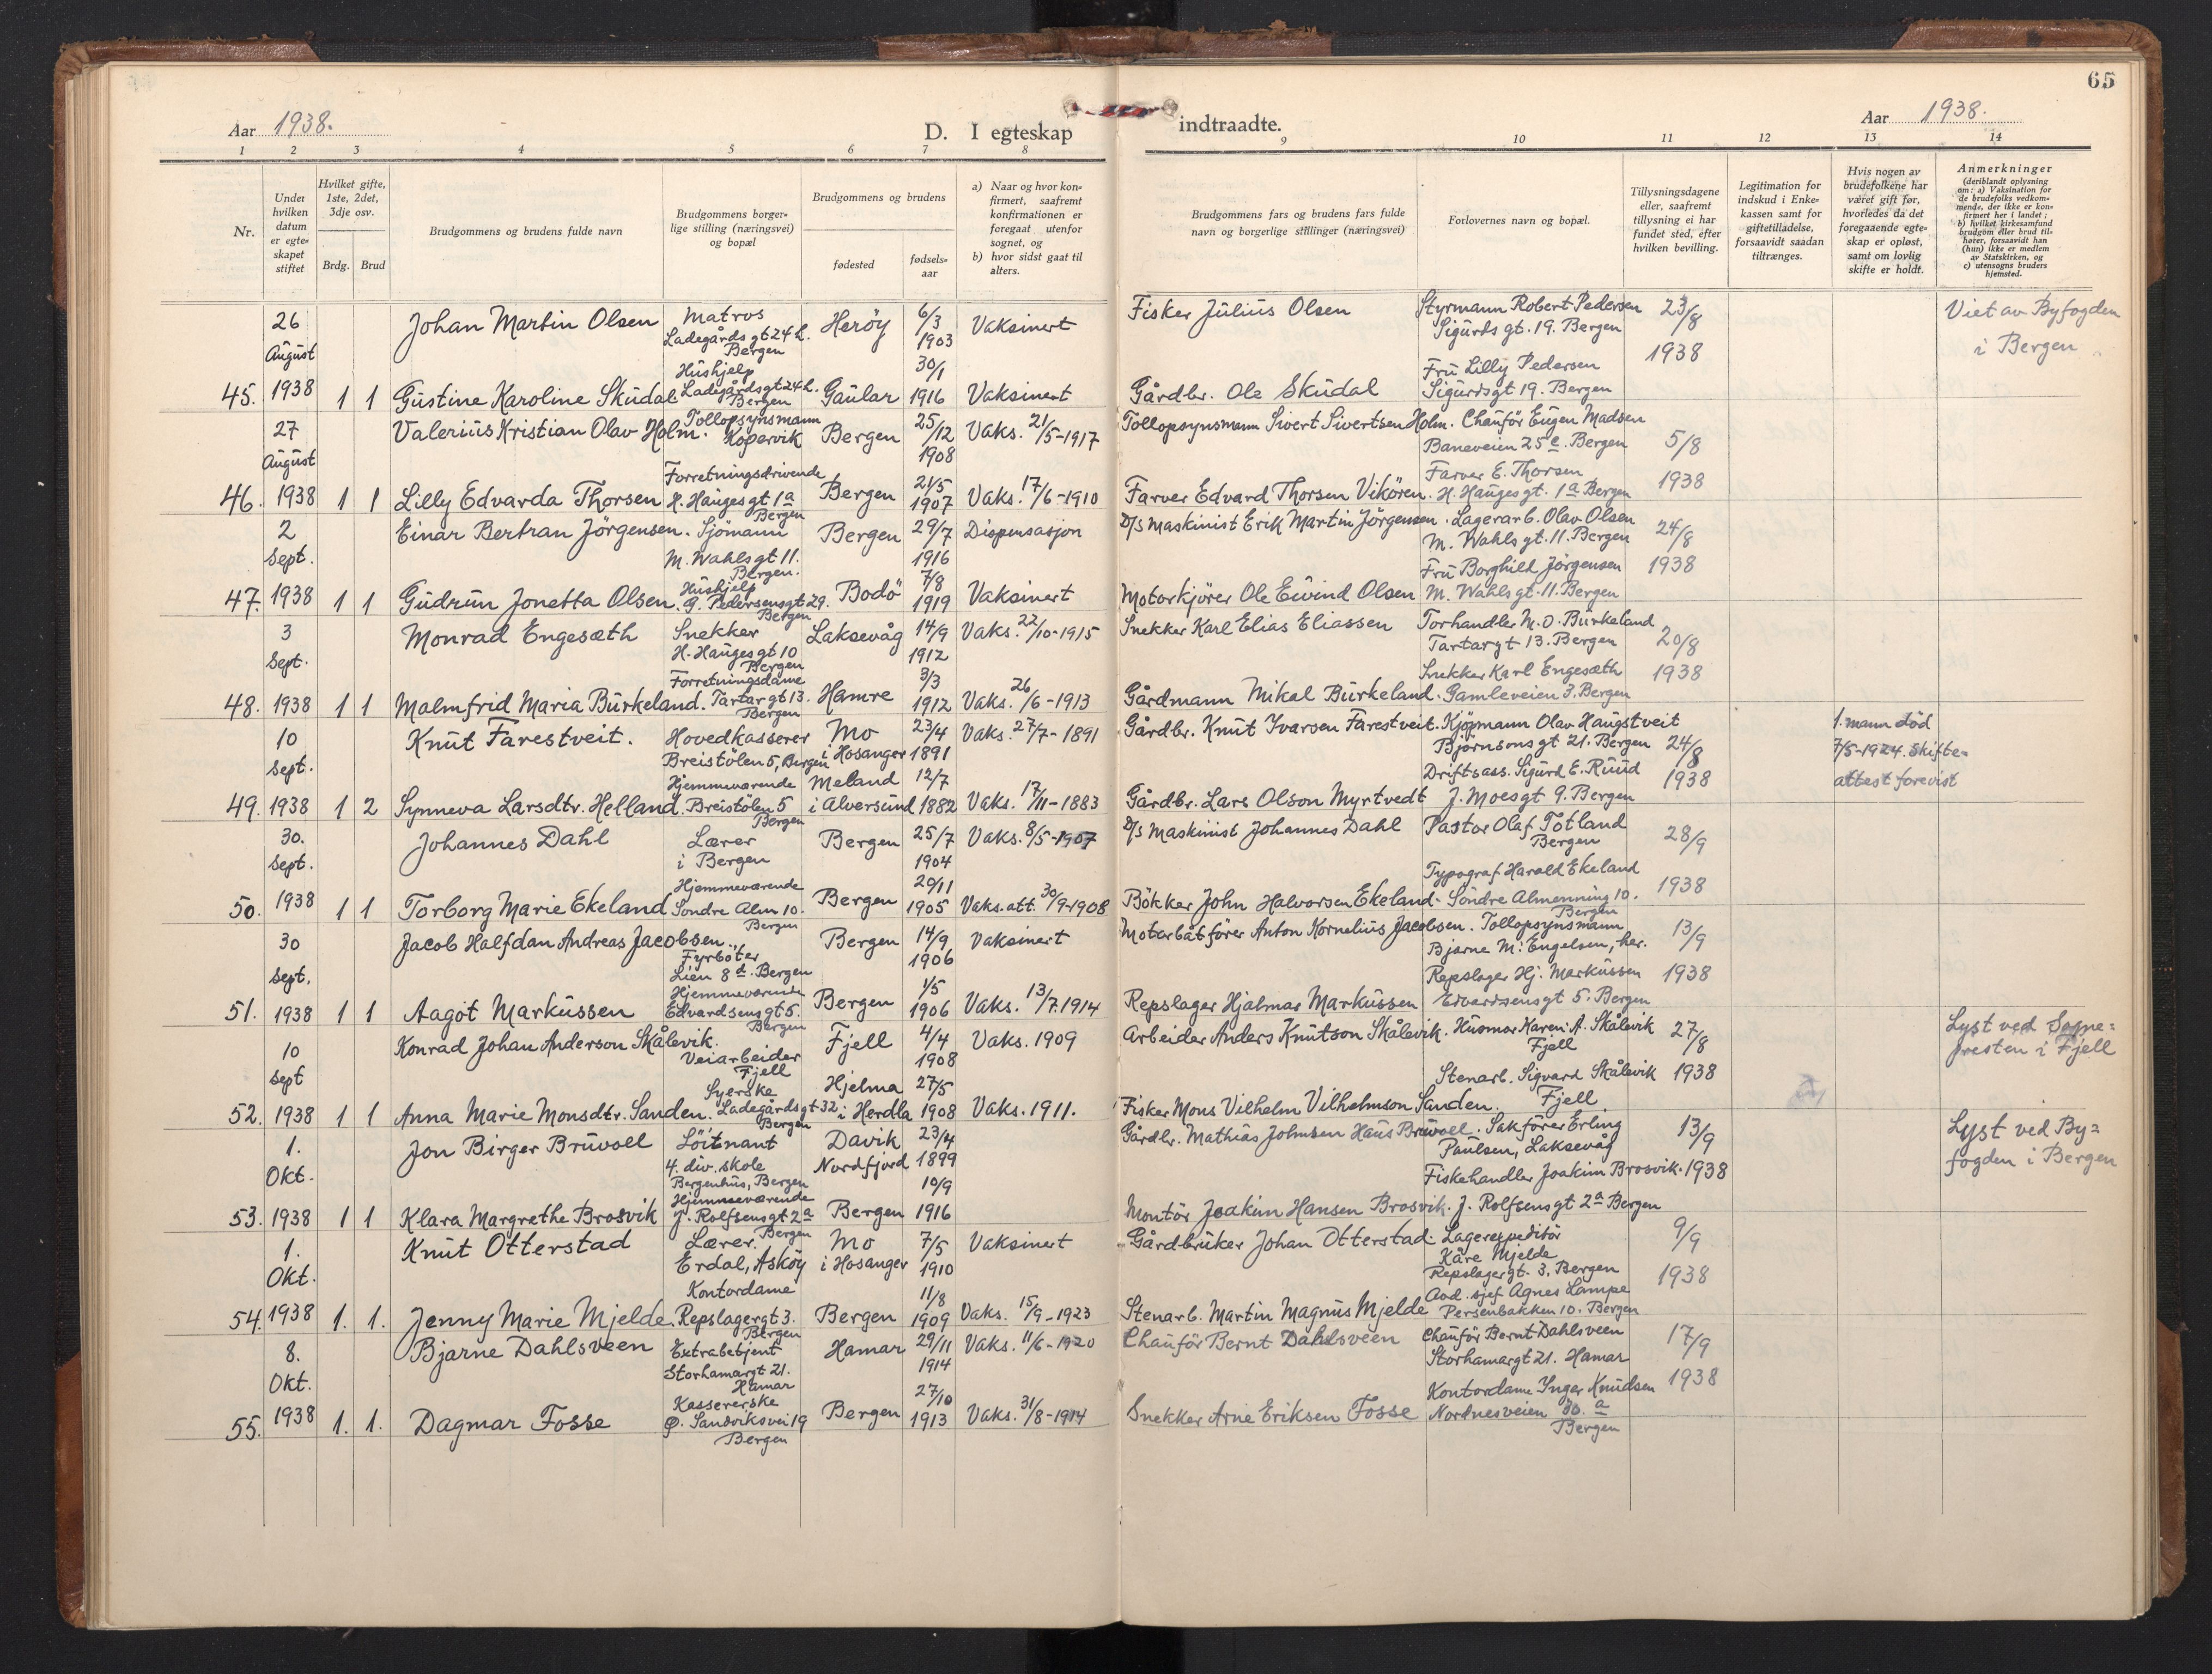 65
Aar 1938.
D. I egteskap
indtraadte.
Aar 1938.
1 2 3 4 5 6 7 8
9 10 11 12 13 14
Nr.
Under
hvilken
datum
er egte-
skapet
stiftet
Hvilket gifte,
1ste, 2det,
3dje osv.
Brdg. Brud
Brudgommens og brudens fulde navn
Brudgommens borger-
lige stilling (næringsvei)
og bopæl
Brudgommens og brudens
fødested
fødsels-
aar
a) Naar og hvor kon-
firmert, saafremt
konfirmationen er
foregaat utenfor
sognet, og
b) hvor sidst gaat til
alters.
Brudgommens fars og brudens fars fulde
navn og borgerlige stillinger (næringsvei)
Forlovernes navn og bopæl.
Tillysningsdagene
eller, saafremt
tillysning ei har
fundet sted, efter
hvilken bevilling.
Legitimation for
indskud i Enke-
kassen samt for
giftetilladelse,
forsaavidt saadan
tiltrænges.
Hvis nogen av
brudefolkene har
været gift før,
hvorledes da det
foregaaende egte-
skap er opløst,
samt om lovlig
skifte er holdt.
Anmerkninger
(deriblandt oplysning
om: a) Vaksination for
de brudefolks vedkom-
mende, der ikke er kon-
firmert her i landet;
b) hvilket kirkesamfund
brudgom eller brud til-
hører, forsaavidt han
(hun) ikke er medlem
av Statskirken, og
c) utensogns bruders
hjemsted.
45.
26
August
1938
1 1
Johan Martin Olsen
Matros
Ladegårdsgt 24 h.
Bergen
Herøy
6/3
1903
Vaksinert
Fisker Julius Olsen
Styrmann Robert Pedersen
Sigurds gt. 19. Bergen
23/8
1938
Viet av Byfogden
i Bergen
Gustine Karoline Skudal
Hushjelp
Ladegårdsgt 24 h.
Bergen
Gaular
30/1
1916
Vaksinert
Gårdbr. Ole Skudal
Fru Lilly Pedersen
Sigurdsgt 19. Bergen
46.
27
August
1938
1 1
Valerius Kristian Olav Holm.
Tollopsynsmann
Kopervik
Bergen
25/12
1908
Vaks. 21/5-1917
Tollopsynsmann Sivert Sivertsen Holm.
Chauför Eugen Madsen
Baneveien 25 e. Bergen
5/8
1938
Lilly Edvarda Thorsen
Forretningsdrivende
H. Haugesgt 1a
Bergen
Bergen
21/5
1907
Vaks. 17/6-1910
Farver Edvard Thorsen Vikören.
Farver E. Thorsen
H. Haugesgt. 1a Bergen
47.
2
Sept.
1938
1 1
Einar Bertran Jörgensen.
Sjömann
M. Wahlsgt 11.
Bergen.
Bergen
29/7
1916
Dispensasjon
D/S Maskinist Erik Martin Jörgensen.
Lagerarb. Olav Olsen
M. Wahls gt. 11. Bergen
24/8
1938
Gudrun Jonetta Olsen.
Hushjelp
G. Pedersensgt 29.
Bergen
Bodö
7/8
1919
Vaksinert
Motorkjörer Ole Eivind Olsen
Fru Borghild Jörgensen
M. Wahls gt. 11. Bergen
48.
3
Sept.
1938
1 1
Monrad Engesæth
Snekker
H. Haugesgt 10
Bergen
Laksevåg
14/9
1912
Vaks. 22/10-1915
Snekker Karl Elias Eliassen
Torhandler M. O. Burkeland
Tartargt 13. Bergen
20/8
1938
Malmfrid Maria Burkeland.
Forretningsdame
Tartargt 13.
Bergen
Hamre
3/3
1912
Vaks. 26/6-1913
Gårdmann Mikal Burkeland.
Snekker Karl Engesæth
Gamleveien 3. Bergen
49.
10
Sept.
1938
1 2
Knut Farestveit.
Hovedkasserer
Breistölen 5, Bergen
Mo
i Hosanger
23/4
1891
Vaks. 27/7-1891
Gårdbr. Knut Ivarsen Farestveit.
Kjöpmann Olav Haugstveit
Björnsons gt 21. Bergen
24/8
1938
1. mann död
7/5-1924. Skifte-
attest forevist
Synneva Larsdtr. Helland.
Hjemmeværende
Breistölen 5
Bergen
Meland
i Alversund
12/7
1882
Vaks. 17/11-1883
Gårdbr. Lars Olson Myrtvedt
Driftsass. Sigurd E. Ruud
J. Moesgt 9. Bergen
50.
30.
Sept.
1938
1 1
Johannes Dahl
Lærer
i Bergen
Bergen
25/7
1904
Vaks. 8/5-1907
D/S Maskinist Johannes Dahl
Pastor Olaf Totland
Bergen
28/9
1938
Torborg Marie Ekeland
Hjemmeværende
Söndre Alm 10.
Bergen
Bergen
20/11
1905
Vaks. att. 30/9-1908
Bökker John Halvorsen Ekeland.
Typograf Harald Ekeland
Söndre Almenning 10.
Bergen
51.
30
Sept.
1938
1 1
Jacob Halfdan Andreas Jacobsen.
Fyrböter
Lien 8 d. Bergen
Bergen
14/9
1906
Vaksinert
Motorbåtförer Anton Kornelius Jacobsen.
Tollopsynsmann
Bjarne M. Engelsen, her.
13/9
1938
Aagot Markussen
Hjemmeværende
Edvardsensgt 5.
Bergen
Bergen
1/5
1906
Vaks. 13/7.1914
Repslager Hjalmar Markussen
Repslager Hj. Markussen
Edvardsensgt 5. Bergen
52.
10
Sept
1938
1 1
Konrad Johan Anderson Skålevik.
Veiarbeider
Fjell
Fjell
4/4
1908
Vaks. 1909
Arbeider Anders Knutson Skålevik.
Husmor Karen A. Skålevik
Fjell
27/8
1938
Lyst ved Sogne=
presten i Fjell
Anna Marie Monsdtr. Sanden.
Syerske
Ladegårdsgt 32
Bergen
Hjelma
i Herdla
27/5
1908
Vaks. 1911.
Fisker Mons Vilhelm Vilhelmson Sanden.
Stenarb. Sigvard Skålevik
Fjell
53.
1.
Okt.
1938
1 1
Jon Birger Bruvoll
Löitnant
4. div. skole
Bergenhus, Bergen
Davik
Nordfjord
23/4
1899
Gårdbr. Mathias Johnsen Haus Bruvoll.
Sakförer Erling
Paulsen, Laksevåg
13/9
1938
Lyst ved By=
fogden i Bergen
Klara Margrethe Brosvik
Hjemmeværende
J. Rolfsensgt 2a
Bergen
Bergen
10/9
1916
Montör Joakim Hansen Brosvik.
Fiskehandler Joakim Brosvik.
J. Rolfsensgt 2a Bergen
54.
1.
Okt.
1938
1. 1.
Knut Otterstad
Lærer.
Erdal, Askøy
Mo
i Hosanger
7/5
1910
Vaksinert
Gårdbruker Johan Otterstad.
Lagerexpeditör
Kåre Mjelde
Repslagergt. 3. Bergen
9/9
1938
Jenny Marie Mjelde.
Kontordame
Repslagergt 3.
Bergen
Bergen
11/8
1909
Vaks. 15/9-1923
Stenarb. Martin Magnus Mjelde
Avd. sjef Agnes Lampe
Persenbakken 10. Bergen
55.
8.
Okt.
1938
1. 1.
Bjarne Dahlsveen
Extrabetjent
Storhamargt 21.
Hamar
Hamar
29/11
1914
Vaks. 11/6-1920
Chauför Bernt Dahlsveen
Chauför Bernt Dahlsveen
Storhamargt 21. Hamar
17/9
1938
Dagmar Fosse
Kassererske
Ø. Sandviksvei 19
Bergen
Bergen
27/10
1913
Vaks. 31/8-1914
Snekker Arne Eriksen Fosse
Kontordame Inger Knudsen
Nordnesveien 30. a
Bergen